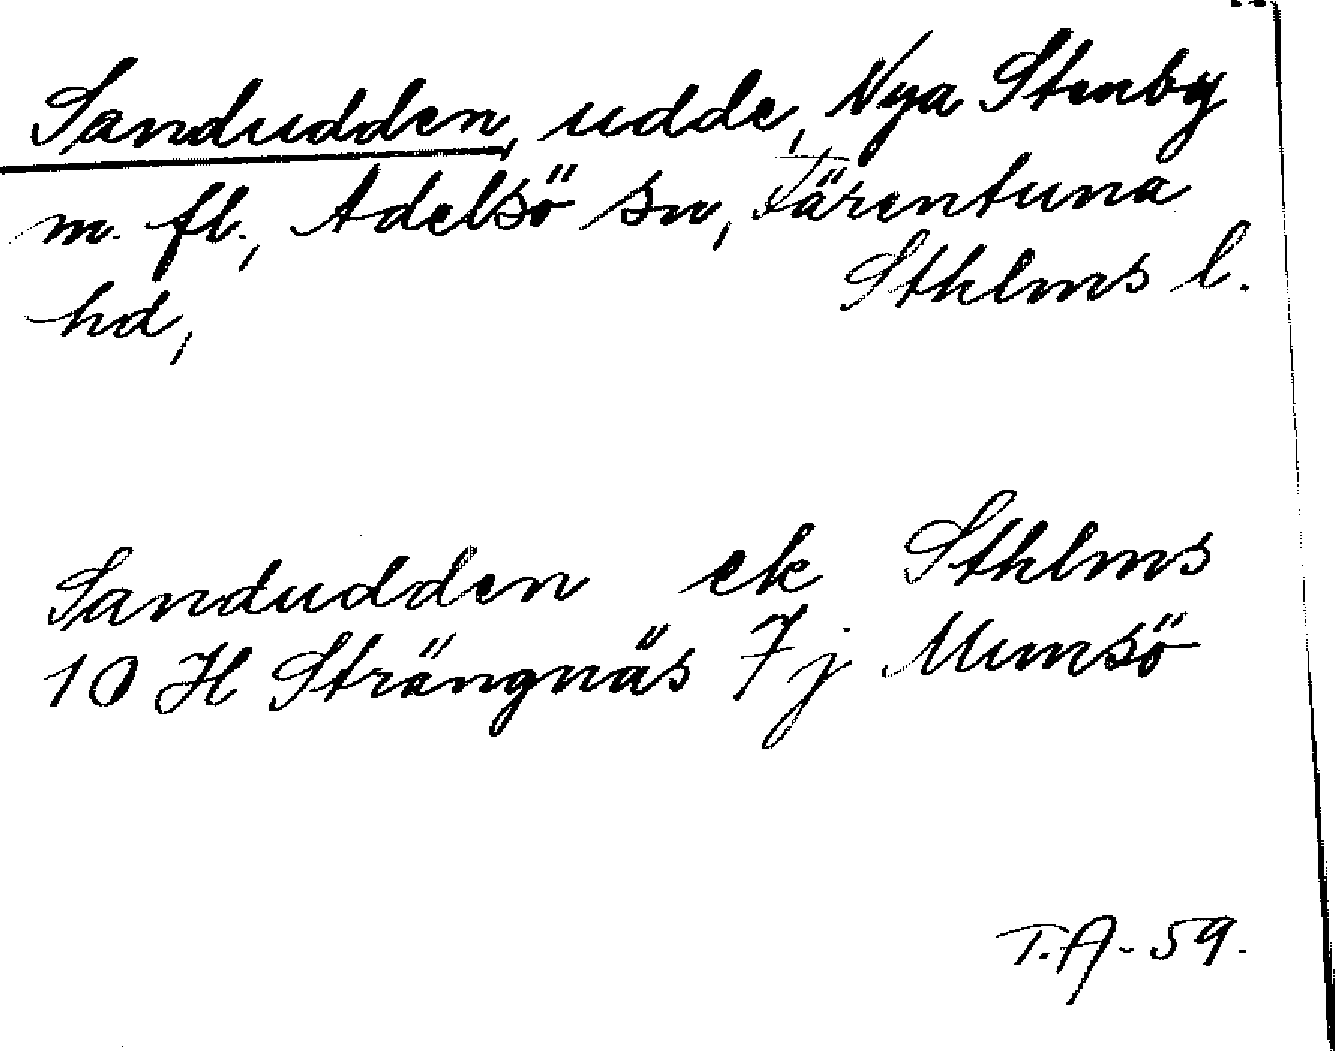 Sandudden, udde, Nya Stenby
m. fl., Adelsö sn, Färentuna
hd, Sthlms l.
Sandudden ek Sthlms
10 H Strängnäs 7j Munsö
T.A-59.